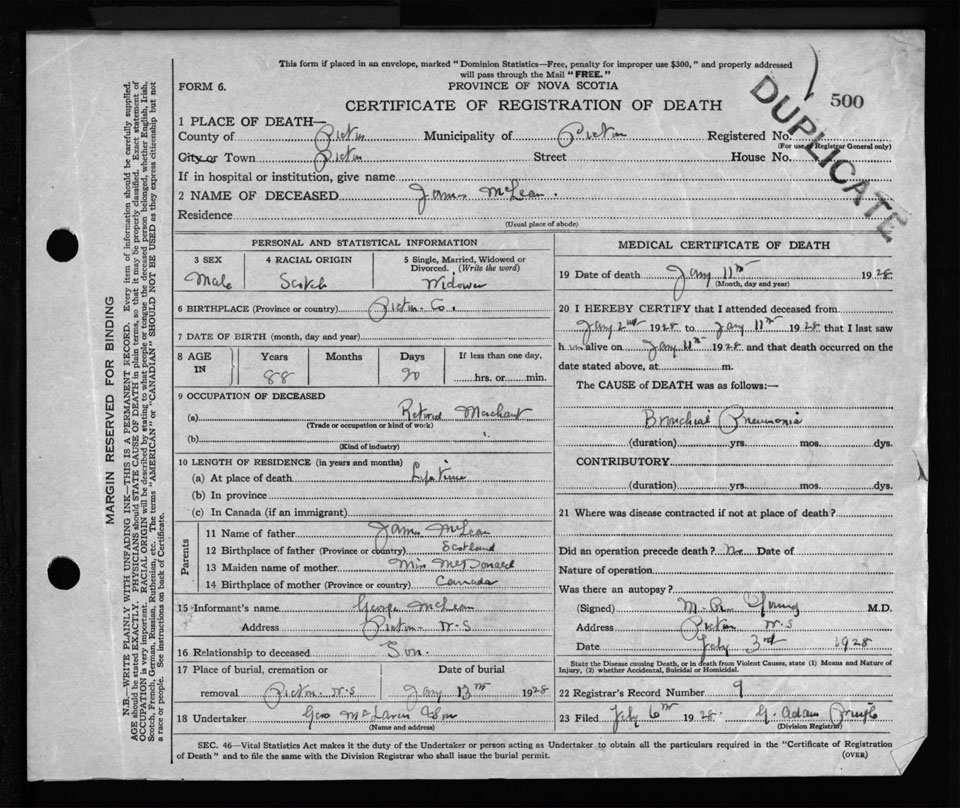 This form if placed in an envelope, marked "Dominion Statistics—Free, penalty for improper use $300," and properly addressed
will pass through the Mail "FREE."
FORM 6.
PROVINCE OF NOVA SCOTIA
CERTIFICATE OF REGISTRATION OF DEATH
500
DUPLICATE
1 PLACE OF DEATH—
County of Pictou Municipality of Pictou Registered No.
(For use of Registrar General only)
City or Town Pictou Street House No.
If in hospital or institution, give name
2 NAME OF DECEASED James McLean.
Residence
(Usual place of abode)
PERSONAL AND STATISTICAL INFORMATION
3 SEX
Male
4 RACIAL ORIGIN
Scotch
5 Single, Married, Widowed or
Divorced. (Write the word)
Widower
6 BIRTHPLACE (Province or country) Pictou Co.
7 DATE OF BIRTH (month, day and year)
8 AGE IN
Years Months Days If less than one day,
88 20 hrs. or min.
9 OCCUPATION OF DECEASED
(a) Retired Merchant
(Trade or occupation or kind of work)
(b)
(Kind of industry)
10 LENGTH OF RESIDENCE (in years and months)
(a) At place of death Life Time
(b) In province
(c) In Canada (if an immigrant)
Parents
11 Name of father James McLean
12 Birthplace of father (Province or country) Scotland
13 Maiden name of mother Miss McDonald
14 Birthplace of mother (Province or country) Canada
15 Informant's name George McLean
Address Pictou N.S
16 Relationship to deceased Son.
17 Place of burial, cremation or
removal Pictou N.S
Date of burial
Jany 13th 1928
18 Undertaker Geo McLaren & Son
(Name and address)
MEDICAL CERTIFICATE OF DEATH
19 Date of death Jany 11th 1928
(Month, day and year)
20 I HEREBY CERTIFY that I attended deceased from
Jany 2nd 1928 to Jany 11th 1928 that I last saw
h im alive on Jany 11th 1928 and that death occurred on the
date stated above, at m.
The CAUSE of DEATH was as follows:—
Bronchial Pneumonia
(duration) yrs. mos. dys.
CONTRIBUTORY
(duration) yrs. mos. dys.
21 Where was disease contracted if not at place of death?
Did an operation precede death? No Date of
Nature of operation
Was there an autopsy?
(Signed) Young M.D.
Address Pictou N.S
Date 3rd 1928
State the Disease causing Death, or in death from Violent Causes, state (1) Means and Nature of
Injury, (2) whether Accidental, Suicidal or Homicidal.
22 Registrar's Record Number 9
23 Filed 6th 1928 G. Adam
(Division Registrar)
SEC. 46—Vital Statistics Act makes it the duty of the Undertaker or person acting as Undertaker to obtain all the particulars required in the "Certificate of Registration
of Death" and to file the same with the Division Registrar who shall issue the burial permit.
(OVER)
MARGIN RESERVED FOR BINDING
N.B.—WRITE PLAINLY WITH UNFADING INK—THIS IS A PERMANENT RECORD. Every item of information should be carefully supplied.
AGE should be stated EXACTLY. PHYSICIANS should STATE CAUSE OF DEATH in plain terms, so that it may be properly classified. Exact statement of
OCCUPATION is very important. RACIAL ORIGIN will be described by stating to what people or tongue the deceased person belonged, whether English, Irish,
Scotch, French, German, Russian, Ruthenian, etc. The terms "AMERICAN" or "CANADIAN" SHOULD NOT BE USED as they express citizenship but not
a race or people. See instructions on back of Certificate.